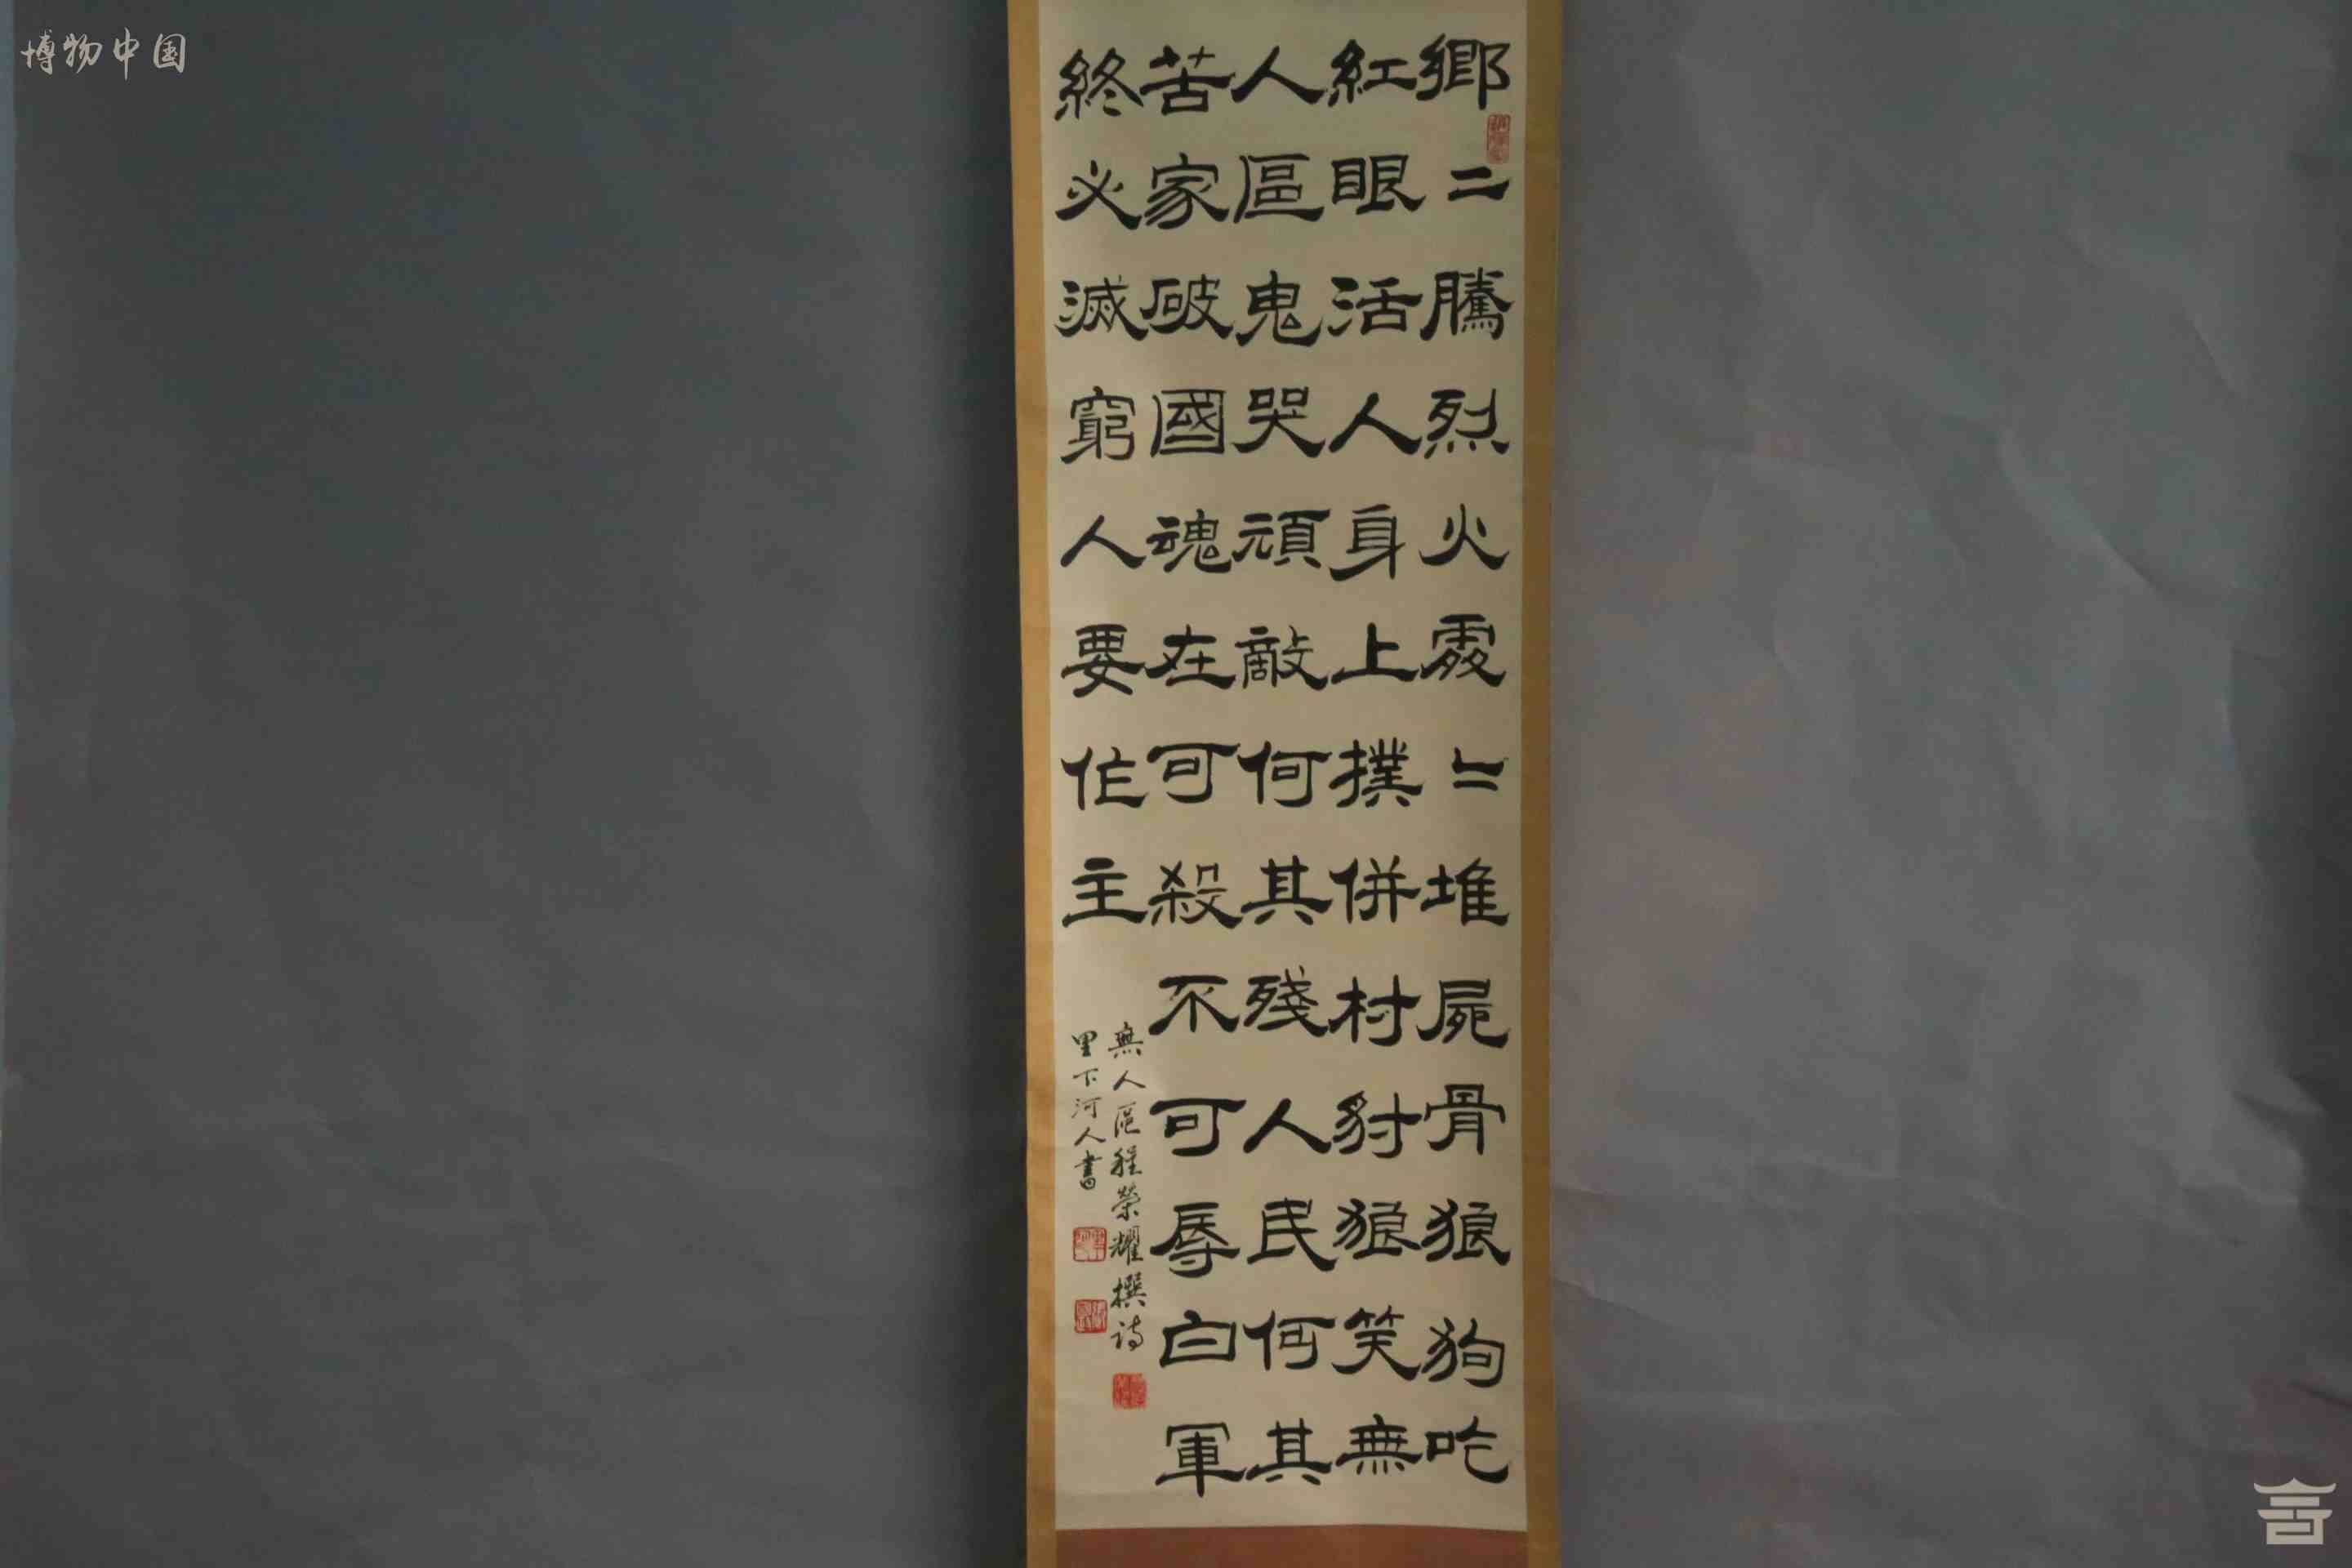 博物中国
鄉二騰烈火處二堆屍骨狼狗吃
紅眼活人身上撲併村豺狼笑無
人區鬼哭頑敵何其殘人民何其
苦家破國魂在可殺不可辱白軍
終必滅窮人要作主
無人區程榮耀撰詩
里下河人書